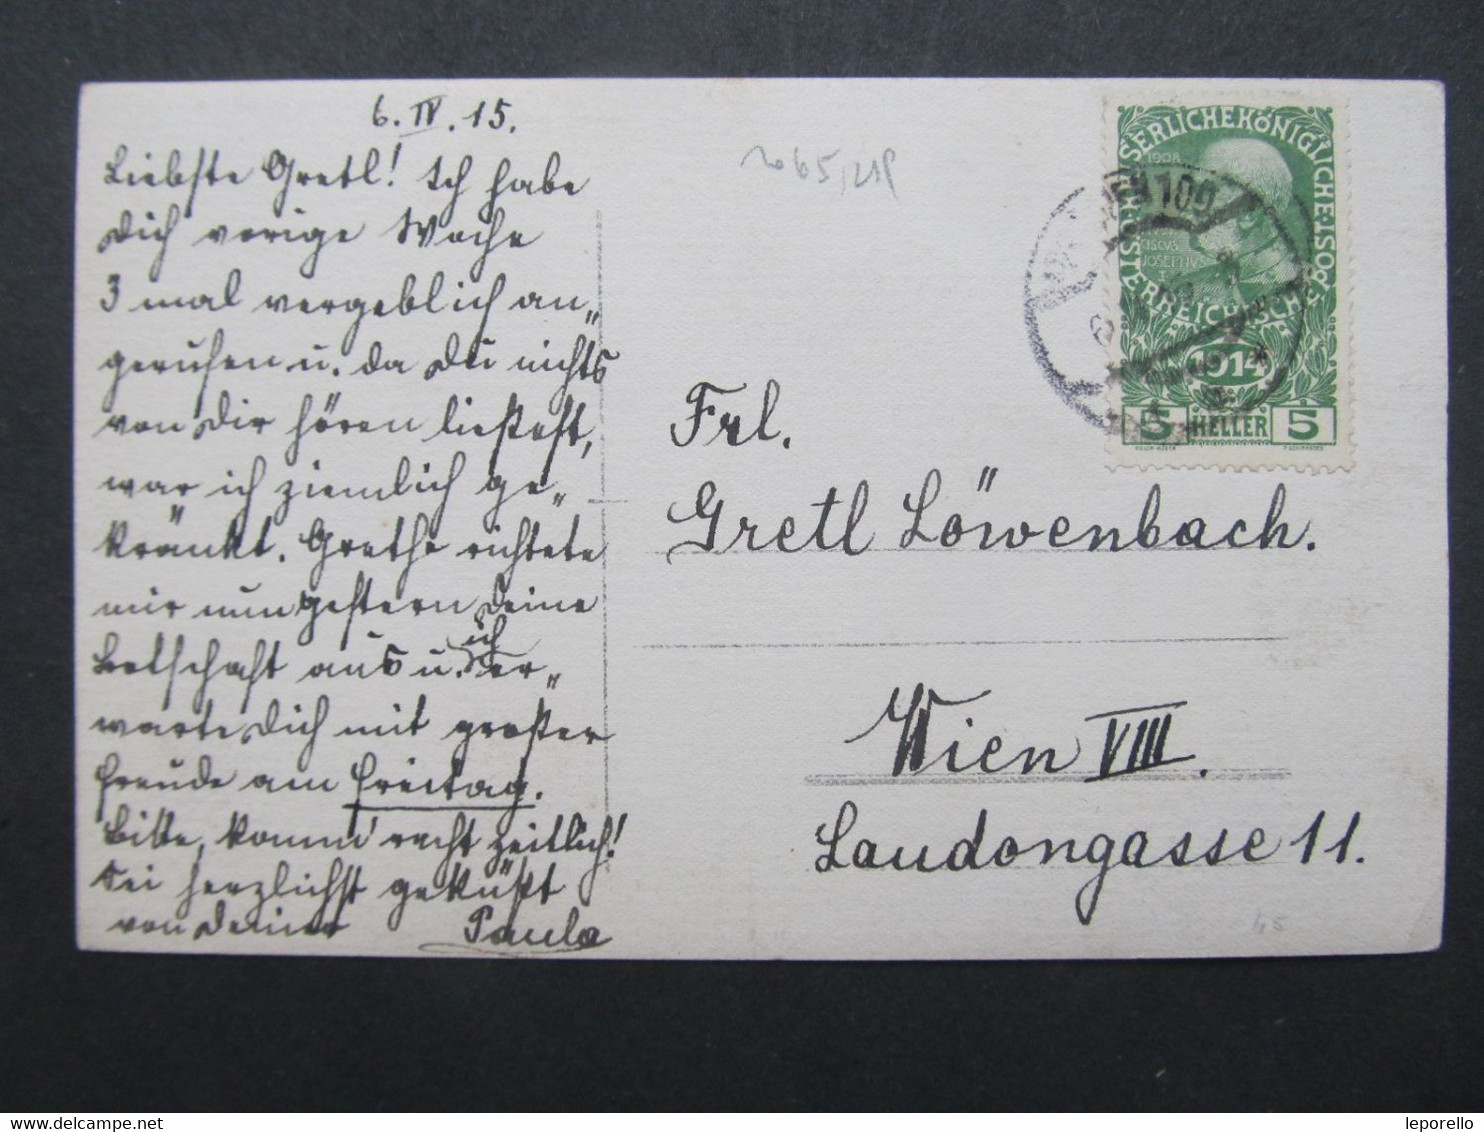 6. IV. 15.
Liebste Gretl! Ich habe
Dich vorige Woche
3 mal vergeblich an„
gerufen u. da Du nichts
von Dir hören ließest,
war ich ziemlich ge„
kränkt. Grethe richtete
mir nun gestern Deine
Botschaft aus u. ich er„
warte Dich mit großer
Freude am Freitag.
Bitte, komm' recht zeitlich!
Sei herzlichst geküßt
von Deiner Paula
Frl.
Gretl Löwenbach.
Wien VIII.
Laudongasse 11.
KAISERLICHEKÖNIGLICHE
ÖSTERREICHISCHE POST
1908
JOSEPHUS
1914
5 HELLER 5
100
45
leporello